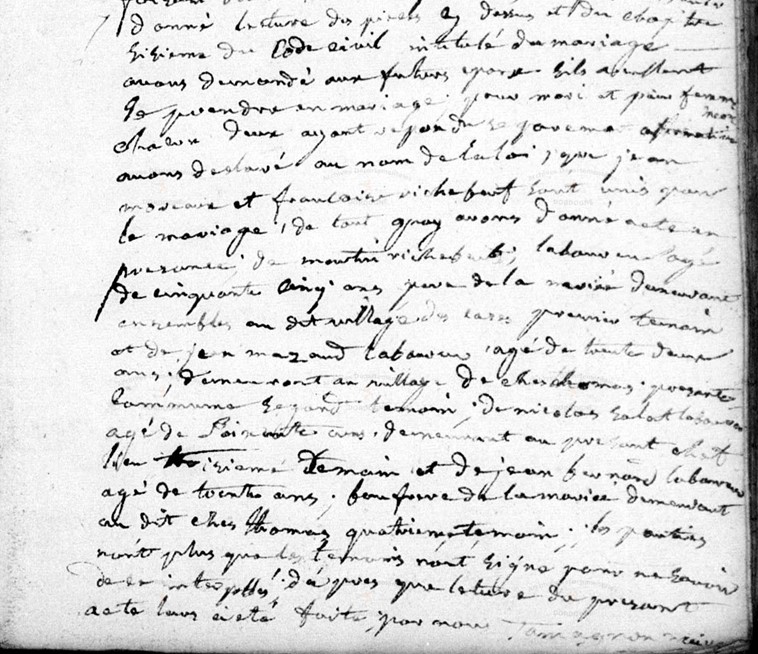 donné lecture des pieces cy dessus et du chapitre
sixieme du Code civil intitulé du mariage
avons demandé aux futurs epoux sils veullent
se prendre en mariage pour mari et pour femme
chacun deux ayant repondu separement afirmative
avons declaré au nom de la loi, que jean
moreau et francoise richebeuf sont unis par
le mariage, de tout quoy avons donné acte en
presance, de martin richebeuf, laboureur agé
de cinquante cinq ans pere de la mariée demeurant
ensembles au dit village des premier temoin
et de jean mazaud laboureur, agé de trente deux
ans, demeurant au village de ches thomas presante
Commune segond temoin, de nicolas laboureur
agé de ans, demeurant au presant chef
lieu troisieme temoin et de jean bernard laboureur
agé de trente ans, beau frere de la mariée demeurant
au dit ches thomas quatrieme temoin, les parties
nont plus que les temoins nont signé pour ne savoir
de ce interpellés, dapres que lecture du presant
acte leur a été faite, par nous